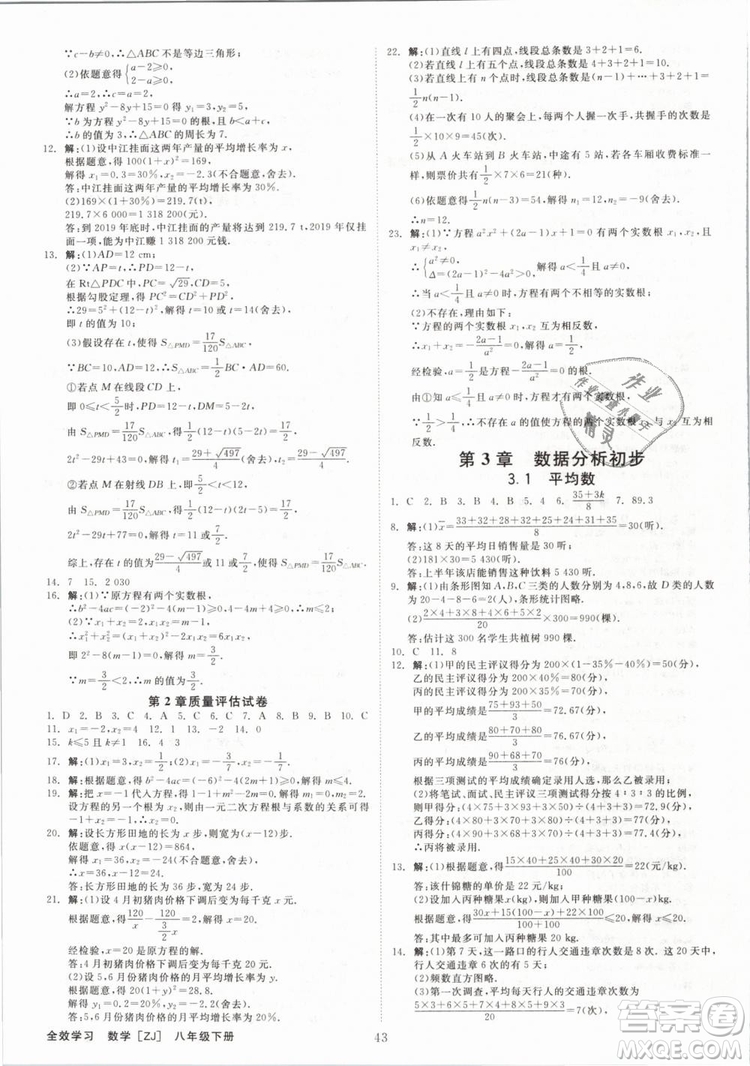 ∵c-b≠0,∴△ABC 不是等边三角形;
(2)依题意,得{a-2≥0, 2-a≥0,∴a=2.
解方程 y²-8y+15=0,得 y₁=3,y₂=5.
∴b 的值为 3,∴△ABC 的周长为 7.
12. 解:(1)设中江挂面这两年产量的平均增长率为 x,
根据题意,得 100(1+x)²=169,
解得 x₁=0.3=30%,x₂=-2.3(舍去).
答:中江挂面这两年产量的平均增长率为 30%.
(2)169×(1+30%)=219.7(t)
219.7×6 000=1 318 200(元).
答:到 2019 年底时,中江挂面的产量将达到 219.7 t,中江挂
面一项,能为中江赚 1 318 200 元.
13. 解:(1)AD=12 cm;
(2)∵AP=t,∴PD=12-t,
在 Rt△PDC 中,∵PC=29,PD=12-t,DC=5,
根据勾股定理,得 29=5²+(12-t)².
∴29=5²+(12-t)²,解得 t₁=10,t₂=14(舍去),
即 t 的值为 10;
(3)假设存在 t,使得 S△PMD=17/120 S△ABC.
∵BC=10,AD=12,∴S△ABC=1/2 BC·AD=60.
①若点 M 在线段 CD 上,
即 0≤t≤5/2 时,PD=12-t,DM=5-2t,
由 S△PMD=17/120 S△ABC,得 1/2 (12-t)(5-2t)=17/2,
2t²-29t+43=0,解得 t₁=(29+√497)/4(舍去),t₂=(29-√497)/4;
②若点 M 在射线 DB 上,即 5/2≤t≤12.
由 S△PMD=17/120 S△ABC,得 1/2 (12-t)(2t-5)=17/2,
2t²-29t+77=0,解得 t₁=11,t₂=7/2.
综上,存在 t 的值为 (29-√497)/4 或 11 或 7/2,使得 S△PMD=17/120 S△ABC.
14. 7 15. 2 030
16. 解:(1)∵原方程有两个实数根,
∴b²-4ac=(-2)²-4(m-1)≥0,∴m≤2;
(2)∵x₁+x₂=2,x₁·x₂=m-1,x₁²+x₂²=6x₁x₂,
∴(x₁+x₂)²-2x₁·x₂=6x₁·x₂,
即 2²=8(m-1),解得 m=3/2.
∵m=3/2<2,∴m 的值为 3/2.
第 2 章质量评估试卷
1. D 2. B 3. D 4. D 5. A 6. B 7. B 8. D 9. B 10. C
11. x₁=0,x₂=4 12. 1 13. 0 14. 20%
15. k≤5 16. 4 3
17. 解:(1)x₁=-1,x₂=1/2;(2)x₁=3,x₂=1/3.
18. 解:根据题意,得 b²-4ac=(-4)²-4(m-1)=0,解得 m=5.
19. 解:将 x=1 代入方程 x²+ax+a-2=0,得 1+a+a-2=0,解得 a=1/2.
设方程的另一个根为 x₀,则由一元二次方程根与系数的关系可得
20. 解:设长方形田地的长为 x 步,那么宽就是(x-12)步.
依题意,得 x(x-12)=864,
解得 x₁=36,x₂=-24(舍去),
∴x-12=24.
答:长方形田地的长为 36 步,宽为 24 步.
21. 解:(1)设 4 月初猪肉价格下调后每斤 x 元.
根据题意,得 120/x - 120/(3/2 x)=2,解得 x=20.
经检验,x=20 是原方程的根.
答:4 月初猪肉价格下调后每斤 20 元;
(2)设 5、6 月份猪肉价格的月平均增长率为 y.
根据题意,得 20(1+y)²=24.2,
解得 y₁=0.1=10%,y₂=-2.1(舍去).
答:5、6 月份猪肉价格的月平均增长率为 10%.
22. 解:(1)若直线 l 上有四点,线段总条数是 3+2+1=6.
(2)若直线 l 上有五点,线段总条数是 4+3+2+1=10.
(3)若直线上有 n 个点,则线段总条数是
1/2 n(n-1).
(4)在一次有 10 人的聚会上,每两个人握一次手,共握手
1/2×10×9=45(次).
(5)从 A 火车站到 B 火车站,若各车厢收费相同,共有票价
1/2×7×6=21(种).
(6)依题意,得 1/2 n(n-3)=54,解得 n₁=12,n₂=-9(舍去),
∴n=12.
23. 解:(1)∵方程 a²x²+(2a-1)x+1=0 有两个实数根 x₁,x₂,
且 x₁≠x₂,
∴{a²≠0, Δ=(2a-1)²-4a²>0, 解得 a<1/4,且 a≠0,
∴当 a<1/4,且 a≠0 时,方程有两个不相等的实数根;
(2)不存在,理由如下:
∵方程的两个实数根 x₁,x₂ 互为相反数,
∴x₁+x₂=-(2a-1)/a²=0,解得 a=1/2.
经检验,a=1/2 是方程-(2a-1)/a²=0 的根.
由①知当 a<1/4,且 a≠0 时,方程才有两个实数根,
∵1/2>1/4,∴不存在 a 的值使方程的两个实数根 x₁,x₂ 互为相
反数.
第 3 章 数据分析初步
3.1 平均数
1. C 2. D 3. B 4. B 5. B 6. (35+3k)/8 7. 89.3
8. 解:(1)x̄=(33+32+28+32+25+24+31+35)/8=30(听).
答:这 8 天的平均日销售量是 30 听;
(2)181×30=5 430(听).
答:上半年该店能销售这种饮料 5 430 听.
9. 解:(1)由条形图知 A,B,C 三类的人数分别为 4,8,6,故 D 类人数
为 20-4-8-6=2,条形统计图略.
(2)(2×4+3×8+4×6+5×2)/20×300=990(棵).
答:估计这 300 名学生共植树 990 棵.
10. C 11. 8
12. 解:(1)甲的民主评议得分为 200×25%=50(分),
乙的民主评议得分为 200×40%=80(分),
丙的民主评议得分为 200×35%=70(分).
甲的平均成绩是 (75+93+50)/3≈72.67(分),
乙的平均成绩是 (80+70+80)/3≈76.67(分),
丙的平均成绩是 (90+68+70)/3=76(分).
根据三项测试的平均成绩确定录用人选,乙将被录用.
(2)将笔试、面试、民主评议三项测试得分按 4∶3∶3 的比例确定,
则甲得分:(4×75+3×93+3×50)÷(4+3+3)=72.9(分),
乙得分:(4×80+3×70+3×80)÷(4+3+3)=77(分),
丙得分:(4×90+3×68+3×70)÷(4+3+3)=77.4(分).
∴丙将被录用.
13. 解:(1)根据题意,得 (15×40+25×40+30×20)/100=22(元/kg).
答:该什锦糖的单价为 22 元/kg;
(2)设加入丙种糖果 x kg,则加入甲种糖果(100-x)kg,
根据题意得 (30x+15(100-x)+22×100)/200≤20,解得 x≤20.
答:最多可加入丙种糖果 20 kg.
14. 解:(1)第 7 天,这一路口的行人交通违章次数为 8 次;这 20 天中,
行人交通违章 6 次的有 5 天.
(2)频数直方图略.
(3)第一次调查,平均每天行人的交通违章次数为
(5×3+6×5+7×4+8×5+9×3)/20=7(次).
全效学习 数学[ZJ] 八年级下册
43
作业
作业检查小帮手
精灵
答案
MXQE.COM